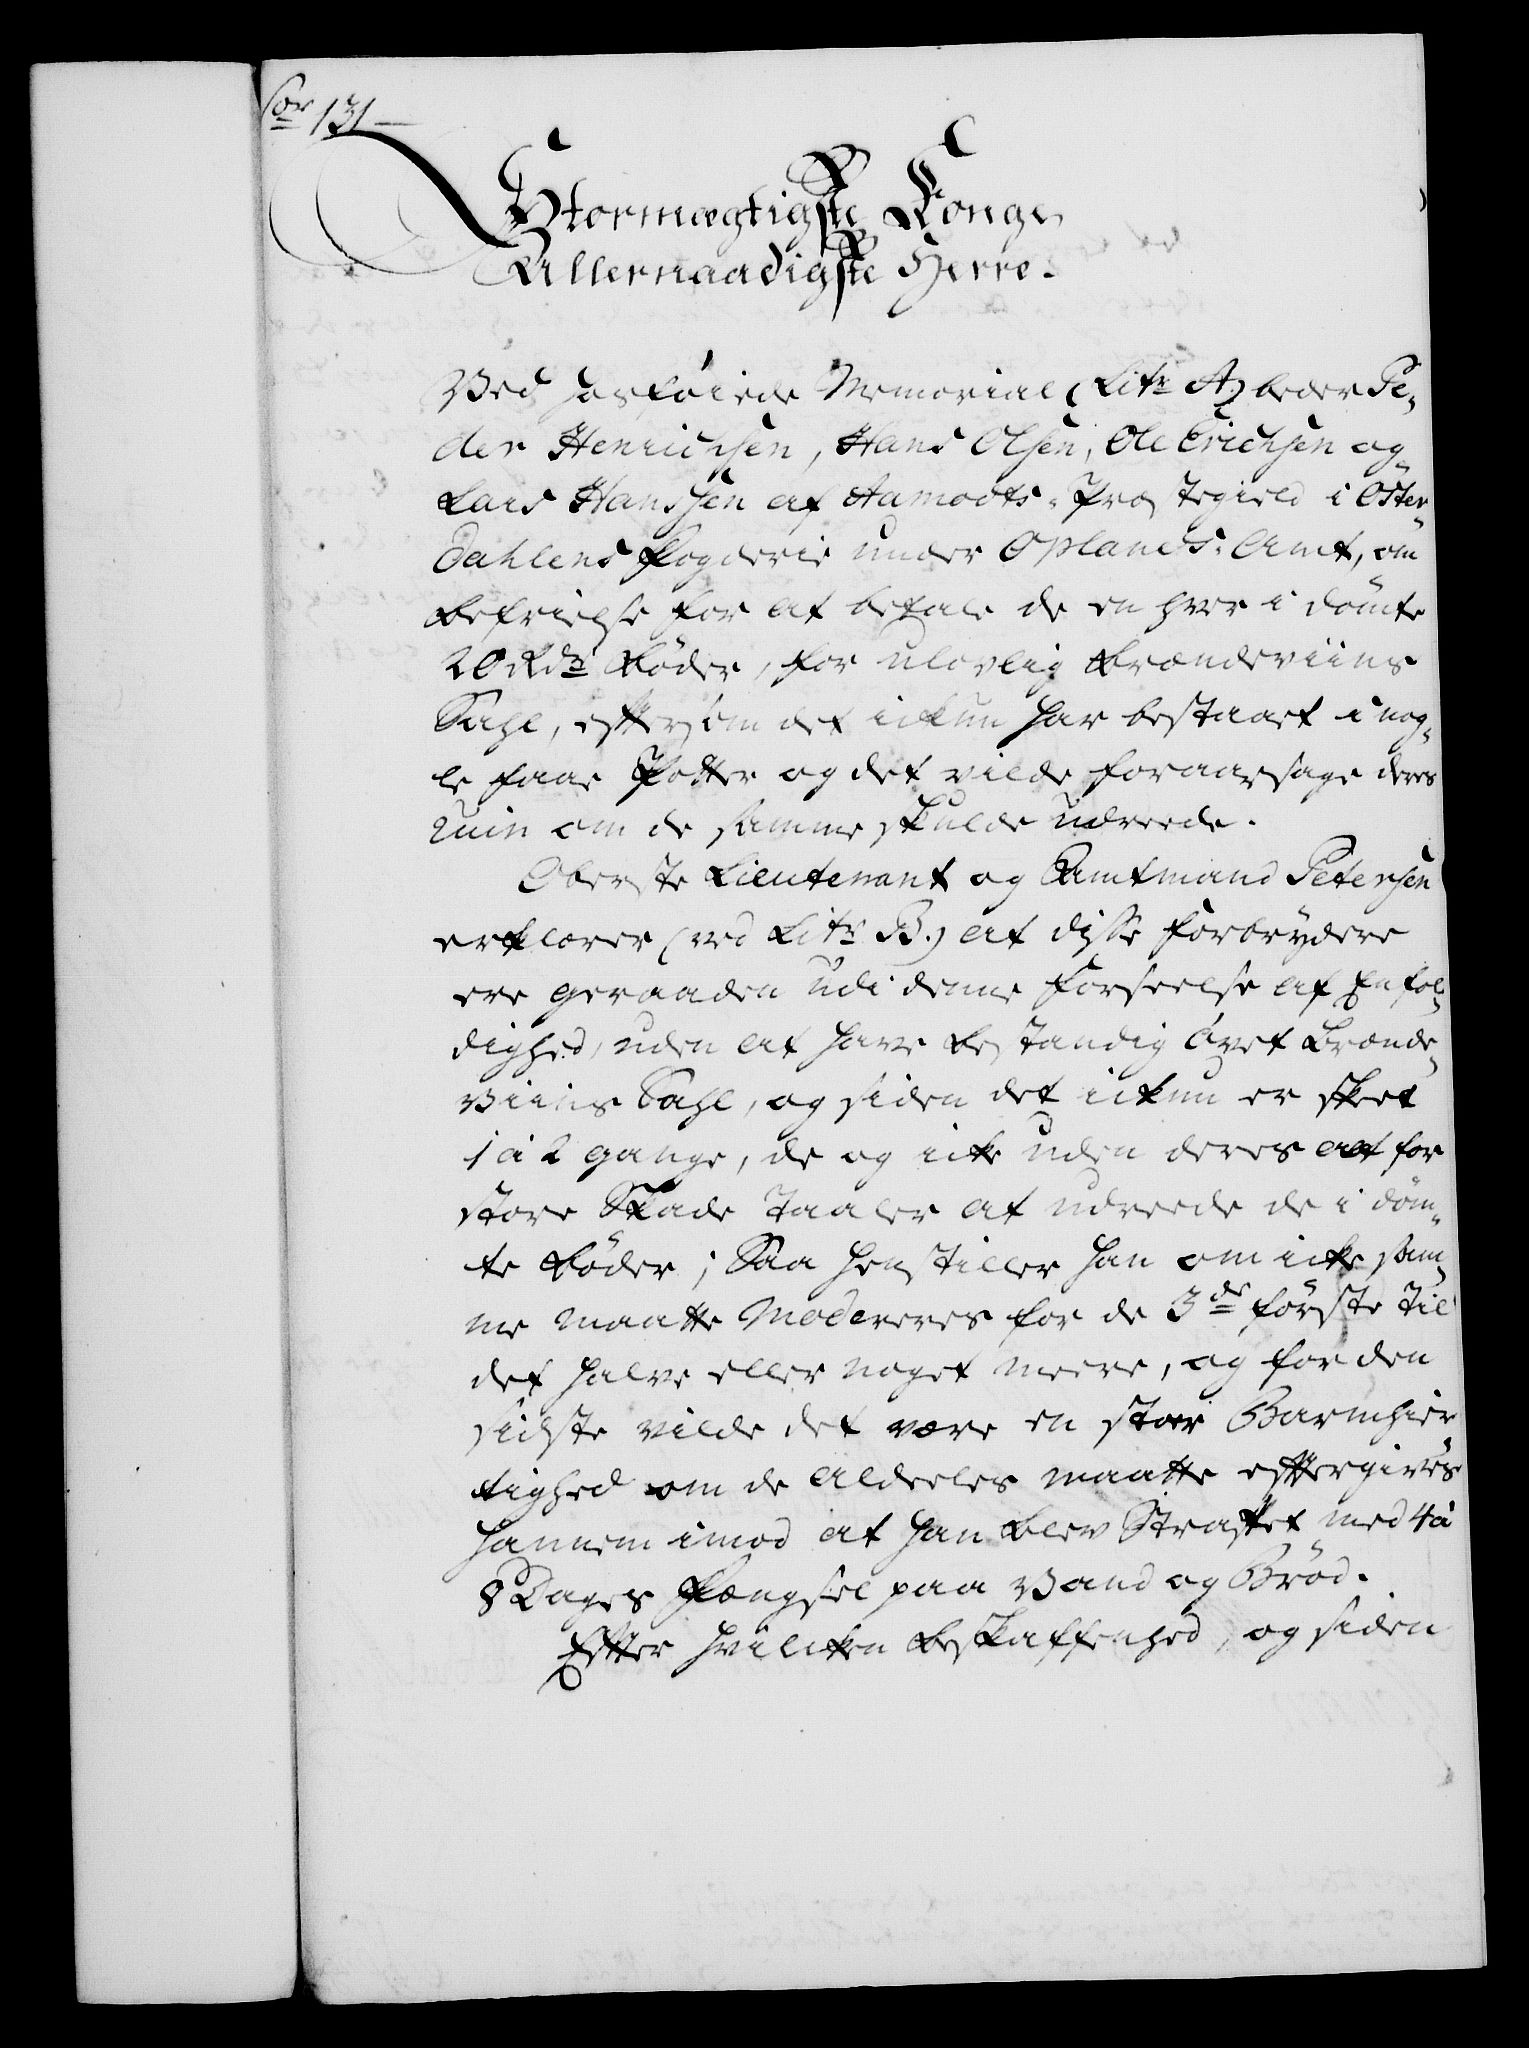 Cor 131
Stormægtigste Konge
Allernaadigste Herre.
Ved hosføiede Memorial (Litr A) beder Pe-
der Henrichsen, Hans Olsen, Ole Erichsen og
Lars Hanssen af Aamodts-Prostegield i Øster-
dahlens Fogderie under Oplands-Amt, om
befrielse for at betale de en hver i dømte
20 Rdr Bøder, for ulovlig Brændeviins
Sahl, eftersom det ickun har bestaaet i nog-
le faae Potter og det vilde foraarsage deres
Ruin om de samme skulde udreede.
Oberste Lieutenant og Amtmand Petersen
erklærer (ved Litr B.) at disse Forbrydere
ere geraaden udi denne Forseelse af Enfol-
dighed, uden at have bestandig øvet Brænde-
Viins Sahl, og siden det ickun er skeet
1 à 2 gange, de og icke uden deres alt for
store Skade taaler at udreede de i døm-
te Bøder; Saa henstiller han om icke sam-
me maatte Modereres for de 3de første til
det halve eller noget meere, og for den
sidste vilde det være en stor Barmhier-
tighed om de aldeeles maatte eftergives
hannem imod at han blev Straffet med 4 à
8 Dages Fængsel paa Vand og Brød.
Efter hvilcken Beskaffenhed, og siden